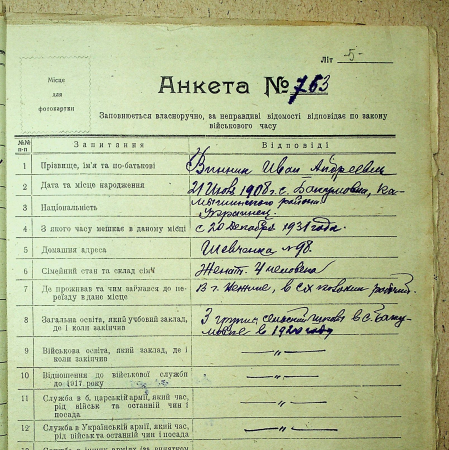 Літ -5-
Місце
для
фотокартки
Анкета № 753
Заповнюється власноручно, за неправдиві відомості відповідає по закону
військового часу
№№
п-п
Запитання
Відповіді
1 Прізвище, ім'я та по-батькові Винник Иван Андреевич
2 Дата та місце народження 21 1908 г. с. Ка-
3 Національність района Украинец.
4 З якого часу мешкає в даному місці с 20 Декабря 1931 года.
5 Домашня адреса Шевченка №98.
6 Сімейний стан та склад сім'ї Женат. 4 человека
7 Де проживав та чим займався до пе-
реїзду в дане місце В г. в с
8 Загальна освіта, який учбовий заклад,
де і коли закінчив 3 школы в с.
в 1920 году
9 Військова освіта, який заклад, де і
коли закінчив —"—
10 Відношення до військової служби
до 1917 року —"—
11 Служба в б. царській армії, який час,
рід військ та останній чин і
посада —"—
12 Служба в Українській армії, який час,
рід військ та останній чин і посада —"—